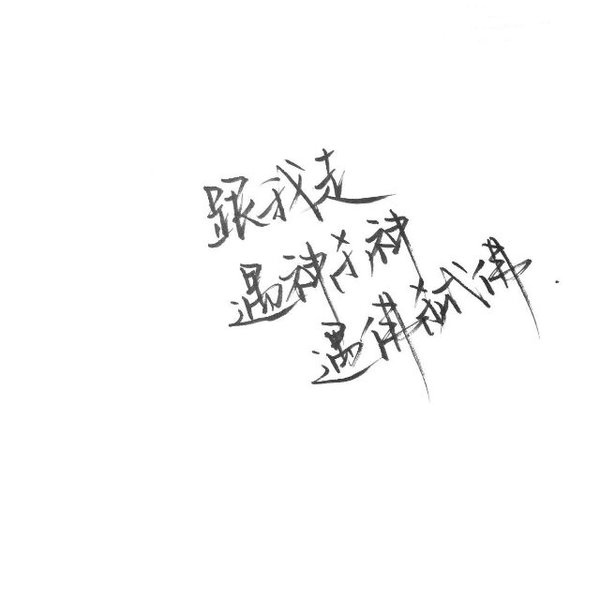 跟我走
遇神杀神
遇佛弑佛